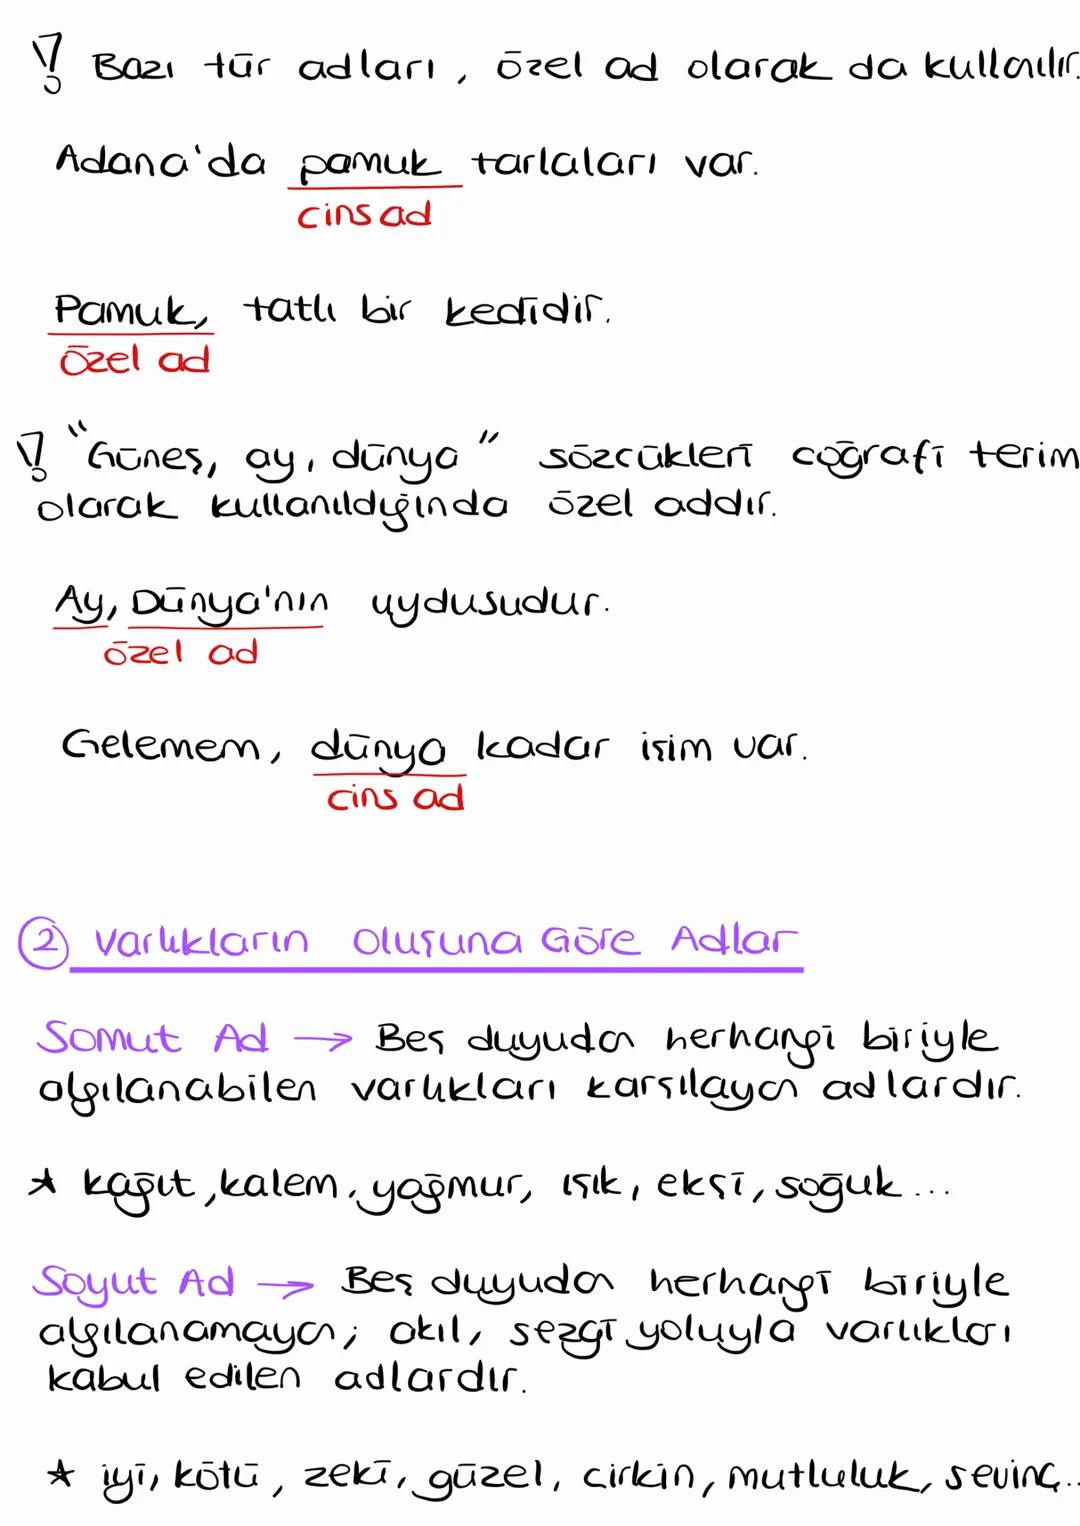 Bazı tür adları, özel ad olarak da kullanılır.
Adana'da pamuk tarlaları var.
cins ad
Pamuk, tatlı bir kedidir.
özel ad
"Güneş, ay, dünya" sözcükleri coğrafi terim
olarak kullanıldığında özel addır.
Ay, Dünya'nın uydusudur.
özel ad
Gelemem, dünya kadar işim var.
cins ad
2 Varlıkların Oluşuna Göre Adlar
Somut Ad → Beş duyudan herhangi biriyle
algılanabilen varlıkları karşılayan adlardır.
* kağıt, kalem, yağmur, ışık, ekşi, soğuk...
Soyut Ad → Beş duyudan herhangi biriyle
algılanamayan; akıl, sezgi yoluyla varlıkları
kabul edilen adlardır.
* iyi, kötü, zeki, güzel, çirkin, mutluluk, sevinç...